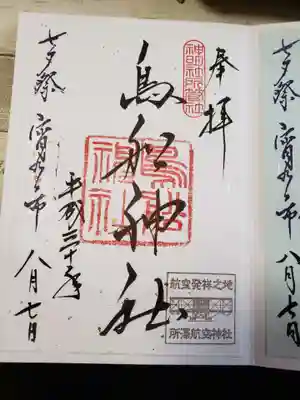 奉拝
神明社所管社
鳥船神社
鳥船
神社
平成三十年
七夕祭 宵乃市 八月七日
航空発祥之地
所澤航空神社
七夕祭 宵乃市 八月七日